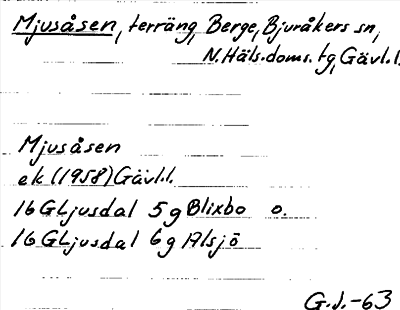 Mjusåsen, terräng, Berge, Bjuråkers sn,
N. Häls. doms. tg, Gävl. l.
Mjusåsen
ek (1958) Gävl. l.
16 G Ljusdal 5 g Blixbo o.
16 G Ljusdal 6 g Alsjö
G. J. -63